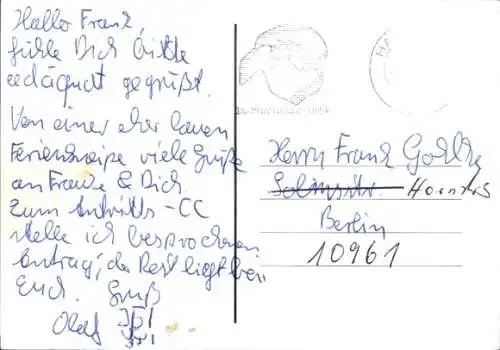 Hallo Franz,
fühle Dich bitte
redäquat gegrüßt.
Von einer eher lauen
Ferienkneipe viele Grüße
an Frauke & Dich.
Zum Antritts-CC
stelle ich besprochenen
Antrag, der Rest liegt bei
Euch. Gruß
Olaf
Herrn Franz
Solmsstr. Hornstr.
Berlin
10961